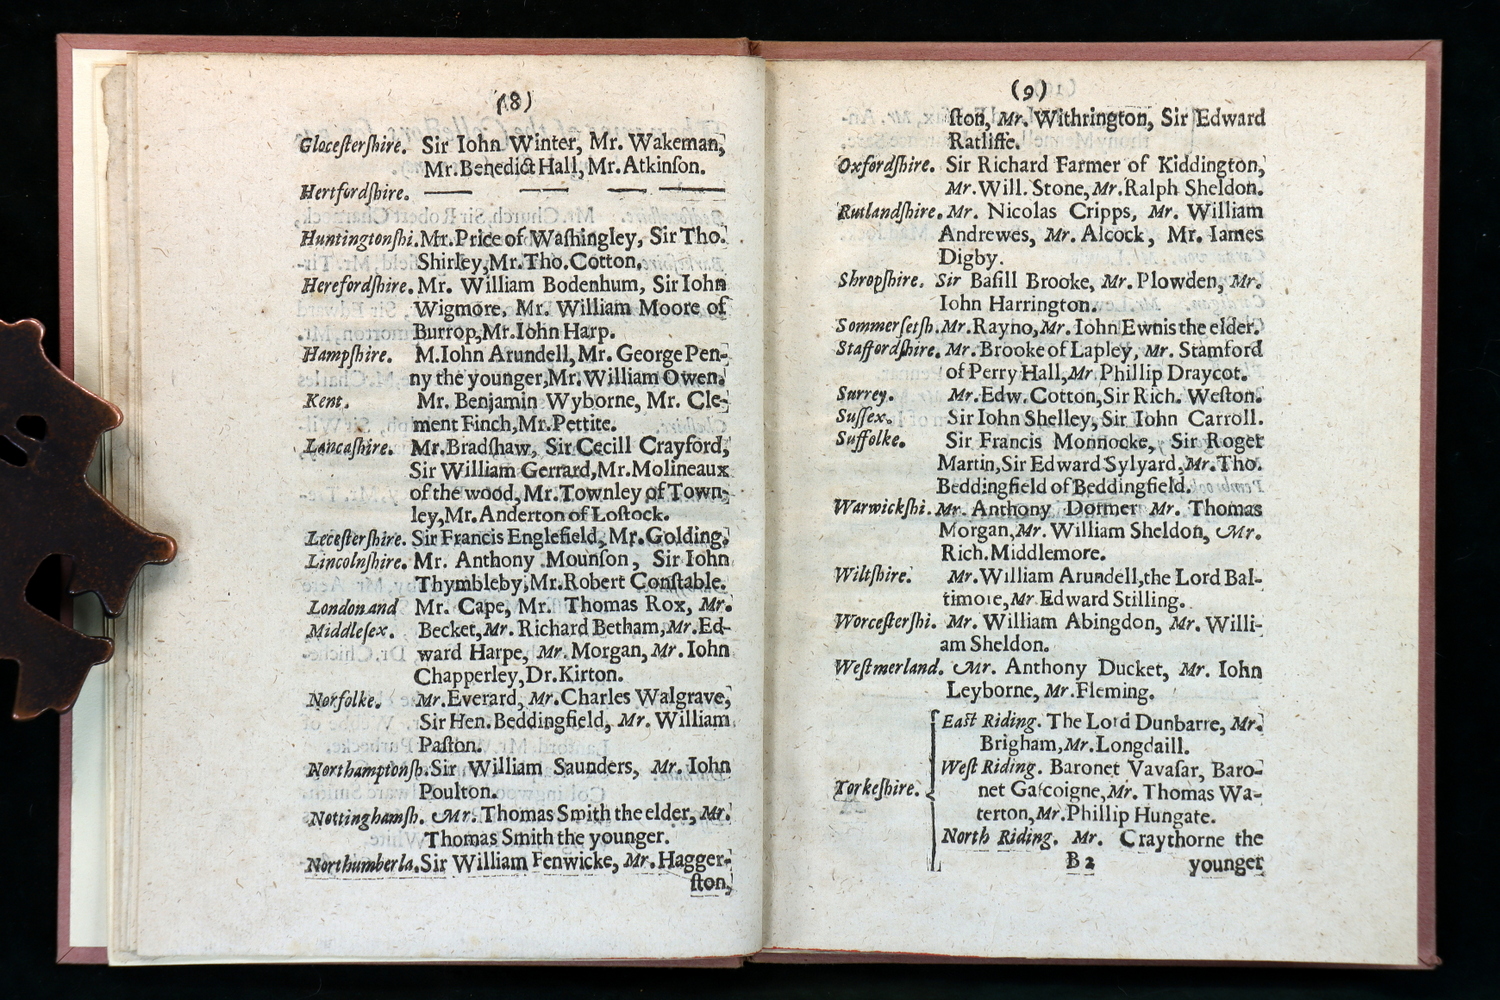 (8)
Glocesterſhire. Sir Iohn Winter, Mr. Wakeman,
Mr. Benedict Hall, Mr. Atkinſon.
Hertfordſhire. —— —— —— ——
Huntingtonſhi. Mr. Price of Waſhingley, Sir Tho.
Shirley, Mr. Tho. Cotton.
Herefordſhire. Mr. William Bodenhum, Sir Iohn
Wigmore, Mr. William Moore of
Burrop, Mr. Iohn Harp.
Hampſhire. M. Iohn Arundell, Mr. George Pen-
ny the younger, Mr. William Owen.
Kent. Mr. Benjamin Wyborne, Mr. Cle-
ment Finch, Mr. Pettite.
Lancaſhire. Mr. Bradſhaw, Sir Cecill Crayford,
Sir William Gerrard, Mr. Molineaux
of the wood, Mr. Townley of Town-
ley, Mr. Anderton of Loſtock.
Leceſterſhire. Sir Francis Englefield, Mr. Golding,
Lincolnſhire. Mr. Anthony Mounſon, Sir Iohn
Thymbleby, Mr. Robert Conſtable.
London and Mr. Cape, Mr. Thomas Rox, Mr.
Middleſex. Becket, Mr. Richard Betham, Mr. Ed-
ward Harpe, Mr. Morgan, Mr. Iohn
Chapperley, Dr. Kirton.
Norfolke. Mr. Everard, Mr. Charles Walgrave,
Sir Hen. Beddingfield, Mr. William
Paſton.
Northamptonſh. Sir William Saunders, Mr. Iohn
Poulton.
Nottinghamſh. Mr. Thomas Smith the elder, Mr.
Thomas Smith the younger.
Northumberla. Sir William Fenwicke, Mr. Hagger-
ſton,
(9)
ſton, Mr. Withrington, Sir Edward
Ratliffe.
Oxfordſhire. Sir Richard Farmer of Kiddington,
Mr. Will. Stone, Mr. Ralph Sheldon.
Rutlandſhire. Mr. Nicolas Cripps, Mr. William
Andrewes, Mr. Alcock, Mr. Iames
Digby.
Shropſhire. Sir Baſill Brooke, Mr. Plowden, Mr.
Iohn Harrington.
Sommerſetſh. Mr. Rayno, Mr. Iohn Ewnis the elder.
Staffordſhire. Mr. Brooke of Lapley, Mr. Stamford
of Perry Hall, Mr. Phillip Draycot.
Surrey. Mr. Edw. Cotton, Sir Rich. Weſton.
Suſſex. Sir Iohn Shelley, Sir Iohn Carroll.
Suffolke. Sir Francis Monnocke, Sir Roger
Martin, Sir Edward Sylyard, Mr. Tho.
Beddingfield of Beddingfield.
Warwickſhi. Mr. Anthony Dormer Mr. Thomas
Morgan, Mr. William Sheldon, Mr.
Rich. Middlemore.
Wiltſhire. Mr. William Arundell, the Lord Bal-
timore, Mr. Edward Stilling.
Worceſterſhi. Mr. William Abingdon, Mr. Willi-
am Sheldon.
Weſtmerland. Mr. Anthony Ducket, Mr. Iohn
Leyborne, Mr. Fleming.
East Riding. The Lord Dunbarre, Mr.
Brigham, Mr. Longdaill.
West Riding. Baronet Vavaſar, Baro-
Yorkeſhire. net Gaſcoigne, Mr. Thomas Wa-
terton, Mr. Phillip Hungate.
North Riding. Mr. Craythorne the
B 2 younger